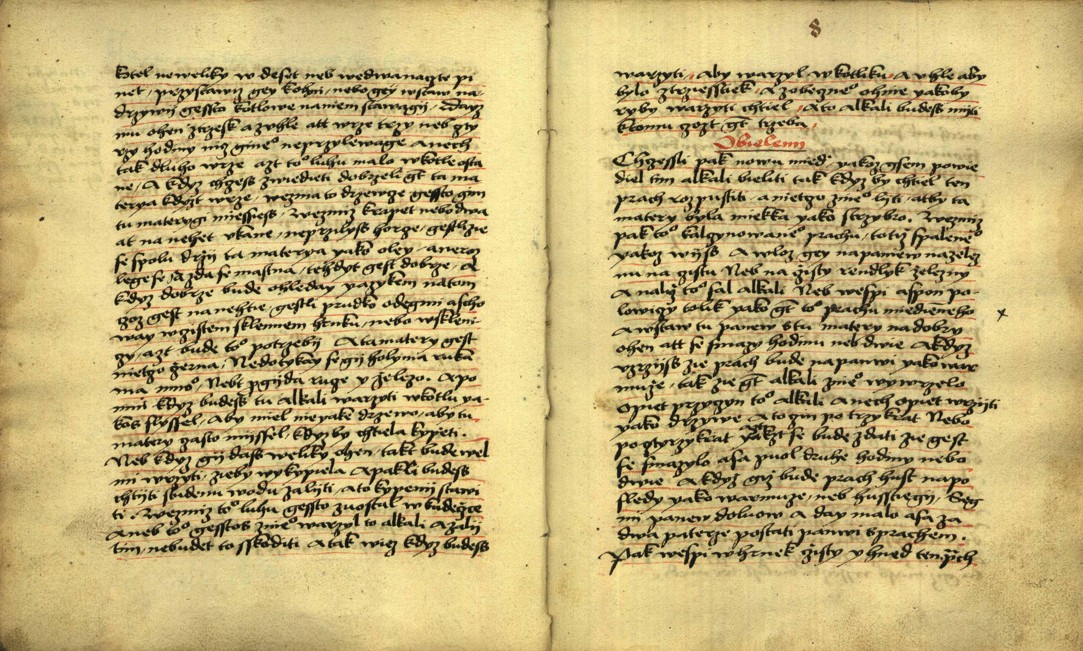 kotel neweliky w deset neb wedwanaczte pi
net, przystawiz gey kohni, nebo gey wstaw na
drzywij gessto kotlowe naniem stawagij.
mu ohen ztrzesk a zuhle att wrze trzy neb
rzy hodiny niz gine° neprzylewage Anech
tak dluho wrze azt to° luhu malo wkotle osta
ne, A kdyz chzess zwiedieti dobrzeli gt ta ma
terya kdyzt wrze, wezmiz to drzewze gessto gim
tu materygi miessiess, Wezmiz krapet nebo dwa
at na nehet ukane, neprzilyss horze, gestlizie
se spolu drzij ta materya yako oley, a neroz
lege se, A zda se mastna, tehdyt gest dobrze, A
kdyz dobrze bude ohleday yazykem na tom
gest na nehtie, gestli prudko odegmi a scho
way w zistem sklennem hrnku, nebo wskleni
zy, azt bude to° potrzebij A ta matery gest
nietzo zerna, Nedotykay se gij holyma ruka
ma nimo, Nebt pgijda ruze y zelezo. A po
tu alkali warzyti wkotlu ya
kos slyssel, Aby miel nieyake drzewo, aby tu
matery zasto mijssel, kdyzby chtiela kypieti.
Neb kdyz gij dass weliky ohen, takt bude wel
mi wrzyti, zieby wykypiela Apakli budess
chtijti studenu wodu zalijti, A to kypenij stawi
ti. Wezmiz to° luhu gessto zuostal w
Aneb to° gesstos z nie° warzyl to alkali a zalij
tim, nebudet to sskoditi A tak wiez kdyz budess
8
warzyti, Aby warzyl w kotliku, A vhle aby
bylo ztrziessliek, A z obezne° ohnie yakoby
ryby warzyti chtiel, A to alkali budess mijti
ktomu gt trzeba,
Obielenij
Chzessli pak nowu mied yakoz gsem powie
diel tim alkali bieliti tak kdyz by chtiel ten
prach roz pustiti, a nietzo z nie° lyti, at by ta
matery byla miekka yako strzybro. Wezmiz
pak to° kalzynowane° prachu, totiz spalene°
yakoz wijss. A wloz gey na panew na zelez
nu na zistu Neb na zisty rendlyk zelezny
A nalij to° sal alkali Neb wespi asspon po=
lowizy tolik yako gt to° prachu miedieneho
A wstaw tu panew s tu matery na dobry
ohen att se smazy hodinu neb dwie Akdyz
vzrzijss zie prach bude na panwi yako war
muze, tak zie gt alkali z nie° wywrzelo
Opiet przygyn to° alkali Anech opiet wrzijti
yako drzywe, A to gin po trzykrat Nebo
po ztyrzykrat Yakzt se bude zdati zie gest
se smazylo asa puol druhe hodiny nebo
dwie A kdyz giz bude prach hust na po
sledy yako warmuze, neb hussczegij, Seg
mi panew doluow A day malo asa za
dwa paterze postati panwi s prachem.
Pak wespi w hrnek zisty y hned ten prch
x